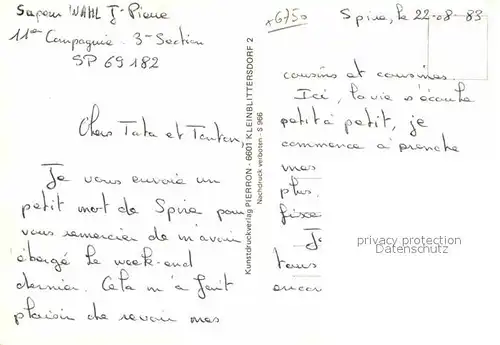 Sapeur WAHL J-Pierre
11ème Compagnie. 3ème Section
SP 69 182
Chers Tata et Tonton,
Je vous envoie un
petit mot de Spire pour
vous remercier de m'avoir
ébergé le week-end
dernier. Cela m'a fait
plaisir de revoir mes
Kunstdruckverlag PIERRON - 6601 KLEINBLITTERSDORF 2
Nachdruck verboten - S 966
x6750
Spire, le 22-08-83
cousins et cousines.
Ici, la vie s'écoule
petit à petit, je
commence à prendre
mes
plus.
fixe
Je
tous
encor
privacy protection
Datenschutz